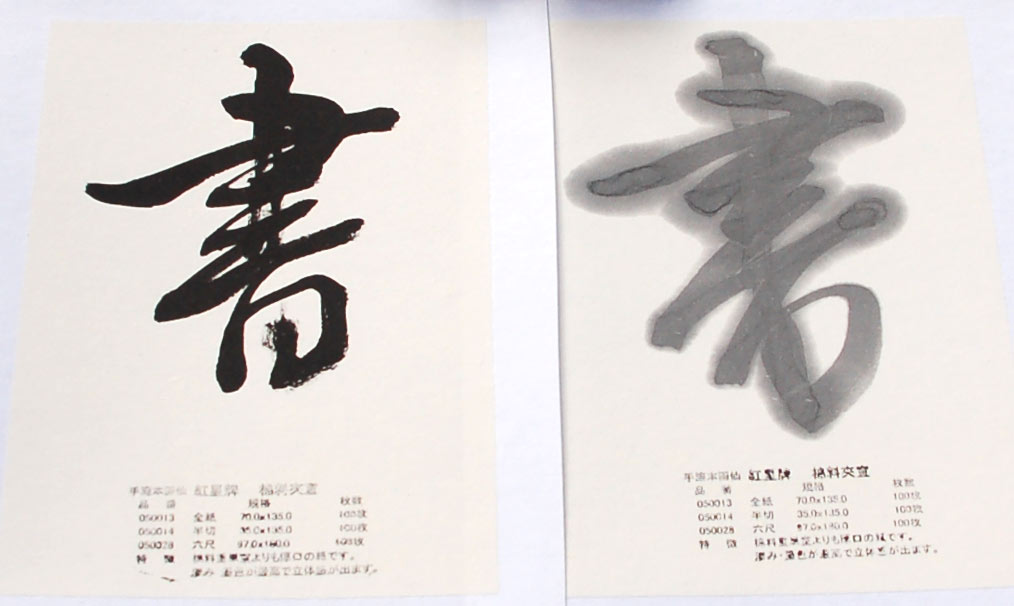 書
手漉本画仙 紅星牌 棉料夾宣
品番 規格 枚数
050013 全紙 70.0x135.0 100枚
050014 半切 35.0x135.0 100枚
050028 六尺 97.0x180.0 100枚
特徴 棉料重単宣よりも厚口の紙です。
滲み・墨色が最高で立体感が出ます。
書
手漉本画仙 紅星牌 棉料夾宣
品番 規格 枚数
050013 全紙 70.0x135.0 100枚
050014 半切 35.0x135.0 100枚
050028 六尺 97.0x180.0 100枚
特徴 棉料重単宣よりも厚口の紙です。
滲み・墨色が最高で立体感が出ます。